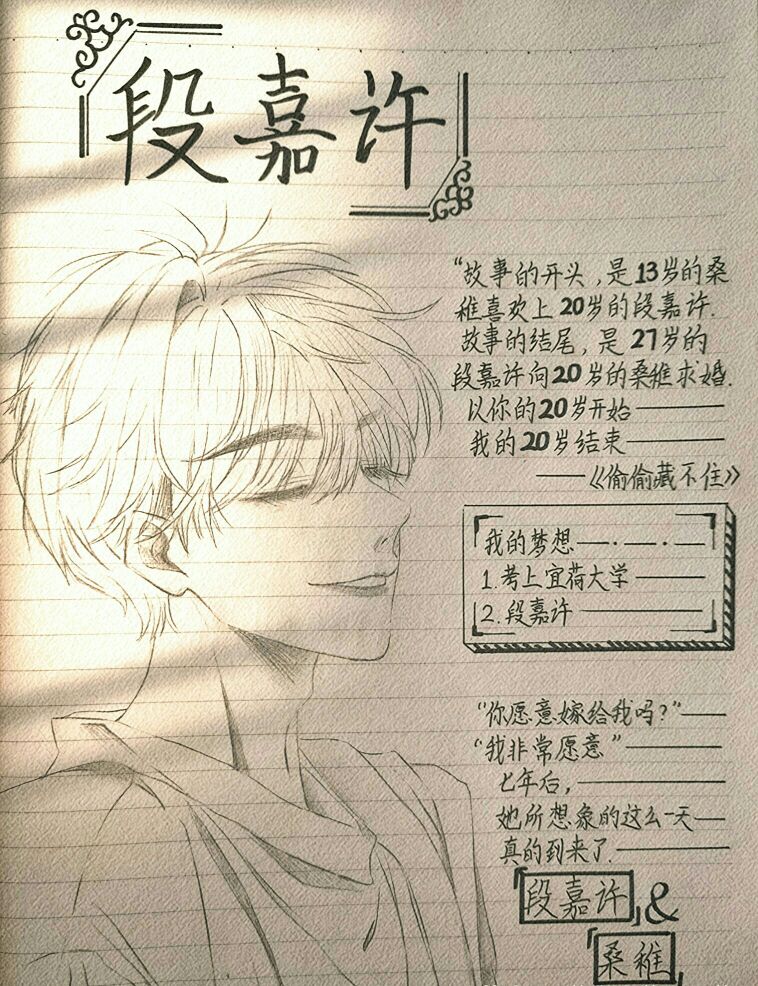 段嘉许
“故事的开头，是13岁的桑
稚喜欢上20岁的段嘉许.
故事的结尾，是27岁的
段嘉许向20岁的桑稚求婚.
以你的20岁开始——
我的20岁结束——
——《偷偷藏不住》
我的梦想—·—·—
1.考上宜荷大学——
2.段嘉许——
“你愿意嫁给我吗？”——
“我非常愿意”——
七年后，——
她所想象的这么一天—
真的到来了.——
段嘉许&
桑稚